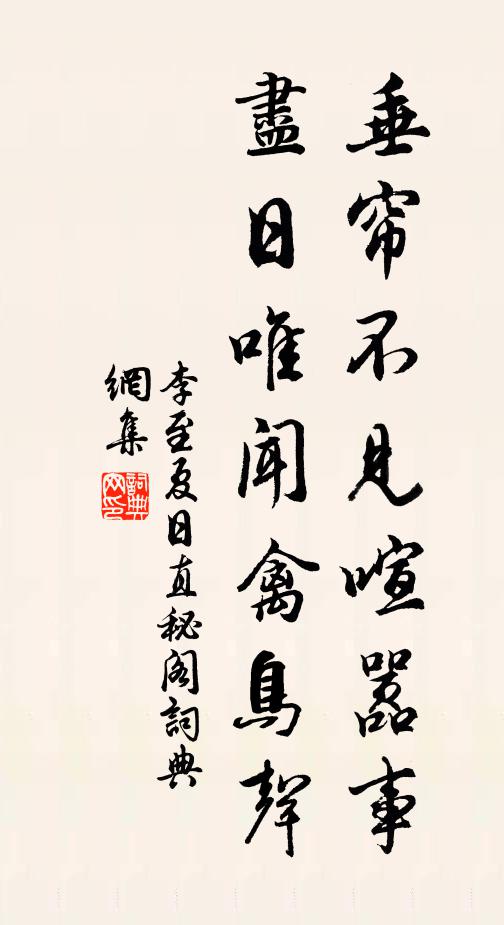 垂帘不見喧嚣事
盡日唯聞禽鳥聲
李至夏日直秘阁詞典
網集
詞典
网印